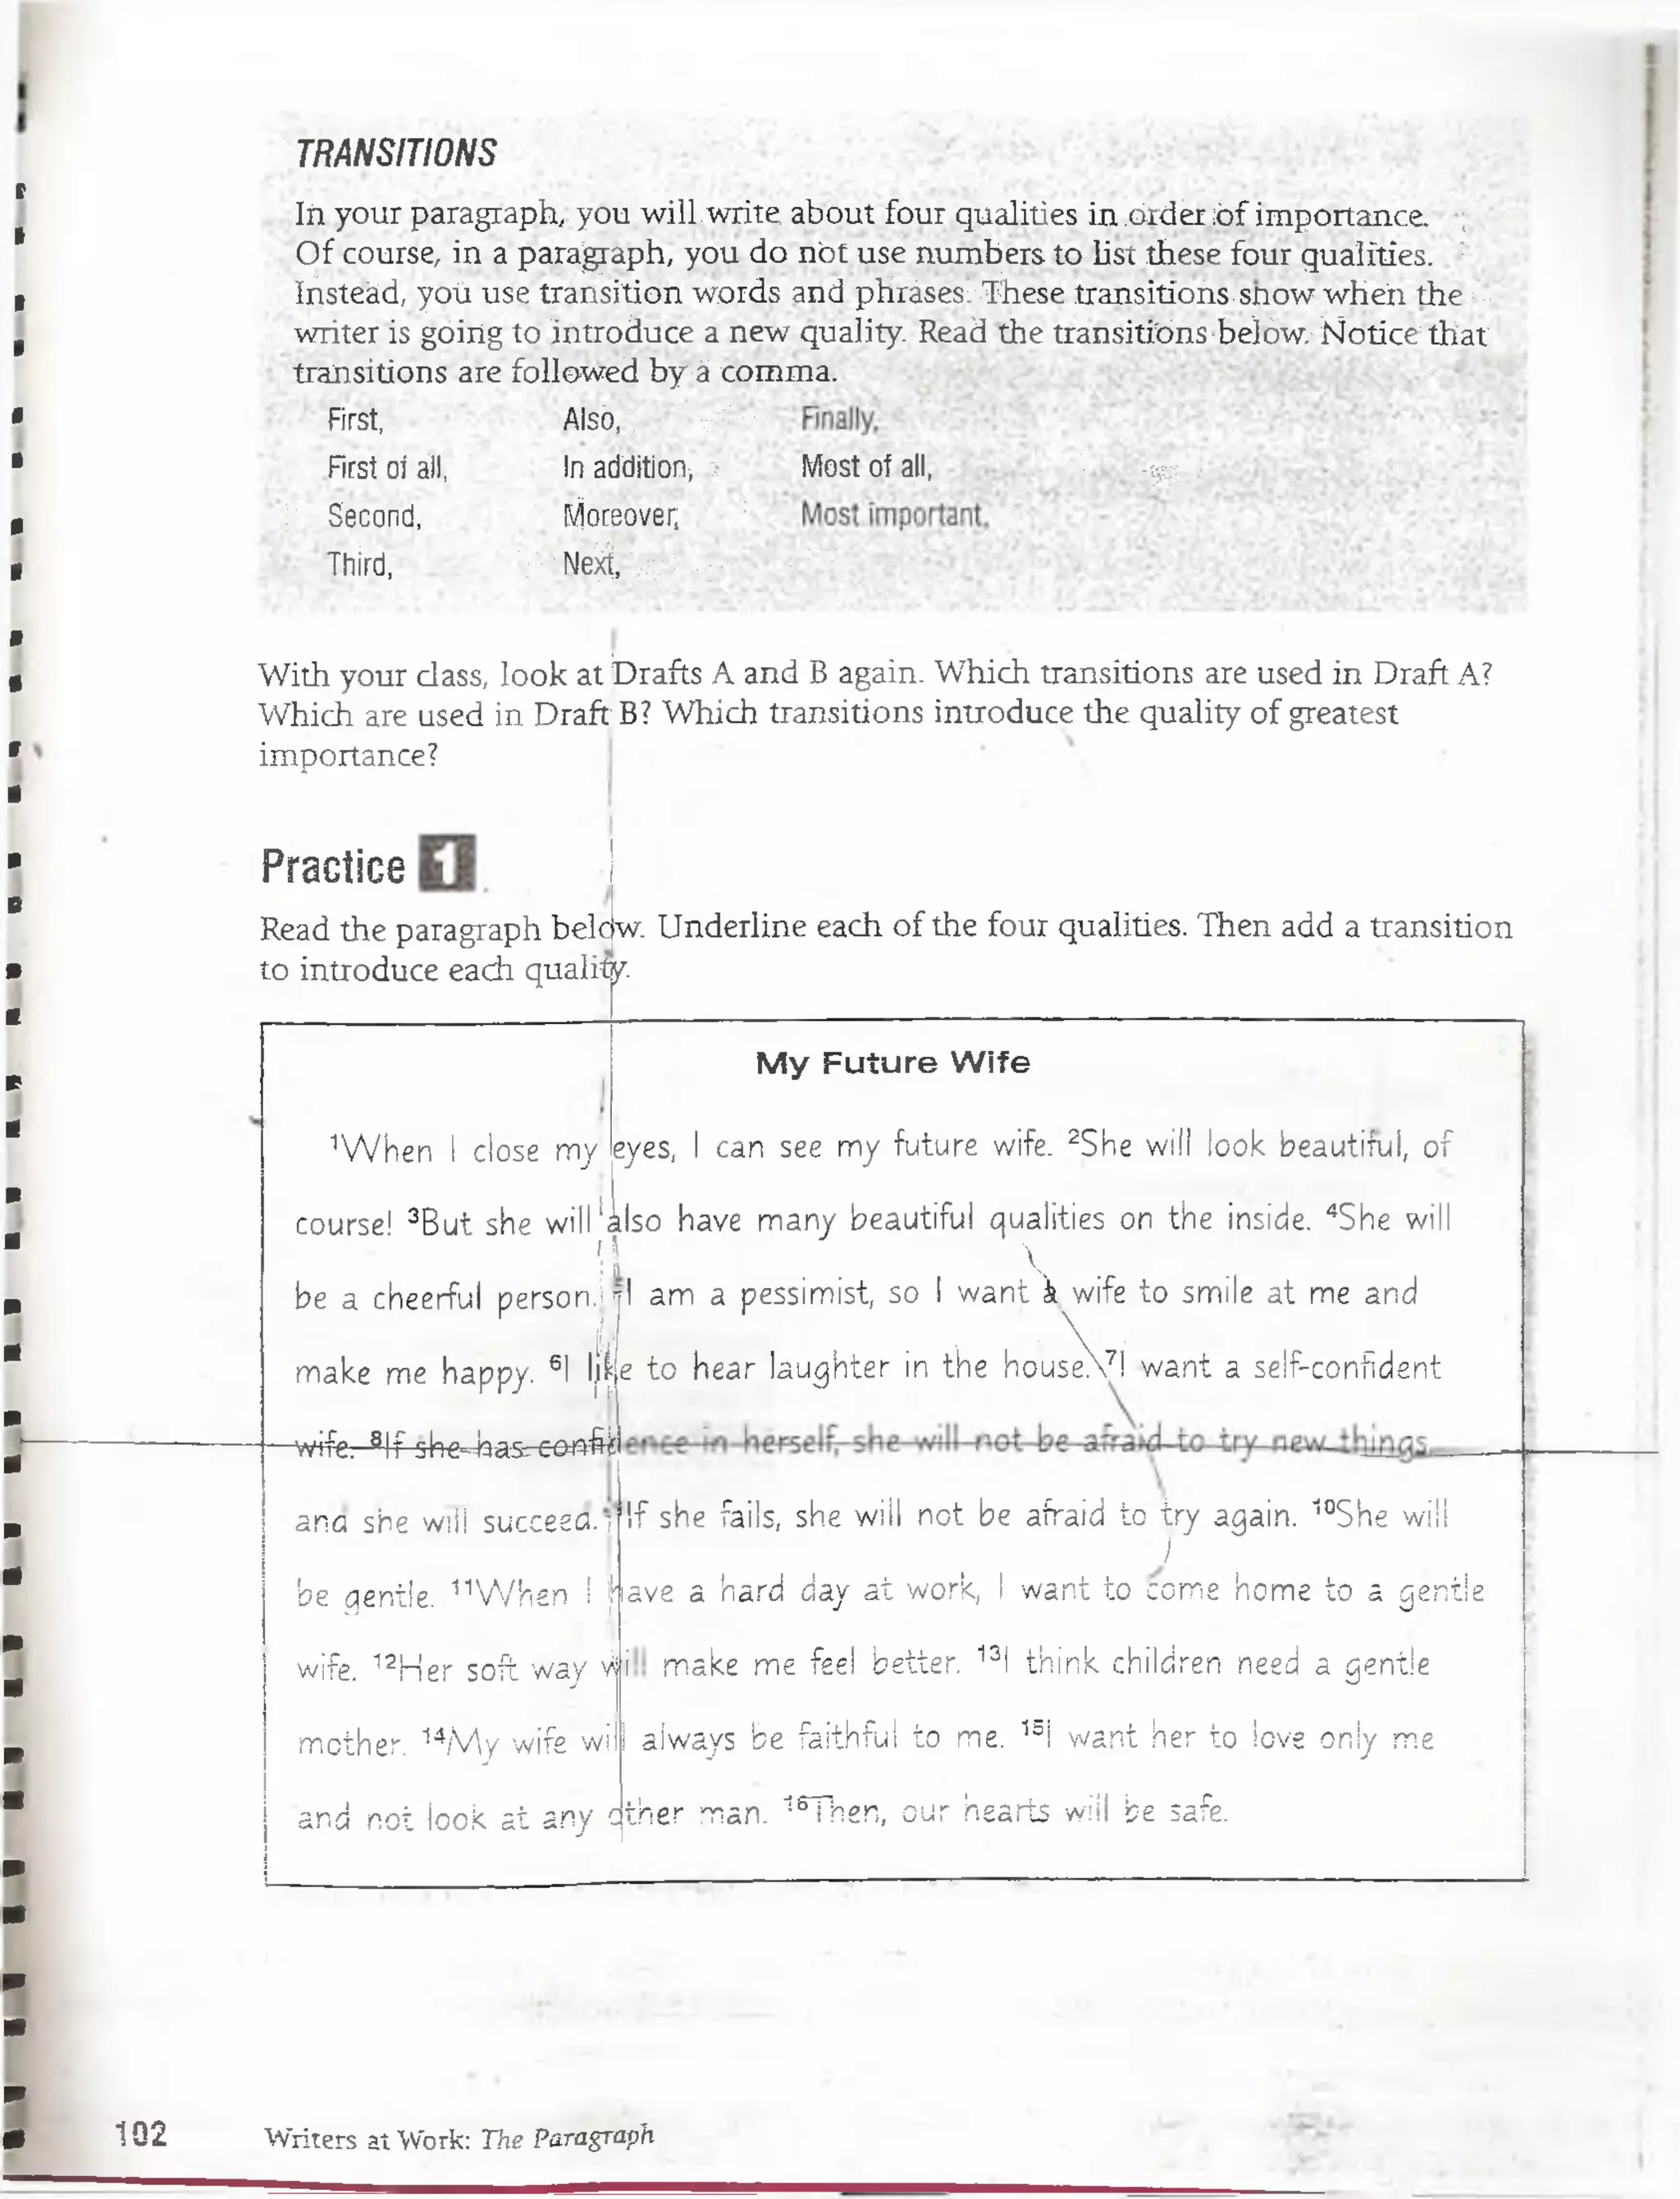 TRANSITIONS
In your paragraph, you will write about four qualities in order of importance.
Of course, in a paragraph, you do not use numbers to list these four qualities.
Instead, you use transition words and phrases. These transitions show when the
writer is going to introduce a new quality. Read the transitions below. Notice that
transitions are followed by a comma.
First, Also, Finally,
First of all, In addition, Most of all,
Second, Moreover, Most important,
Third, Next,
With your class, look at Drafts A and B again. Which transitions are used in Draft A?
Which are used in Draft B? Which transitions introduce the quality of greatest
importance?
Practice 1
Read the paragraph below. Underline each of the four qualities. Then add a transition
to introduce each quality.
My Future Wife
¹When I close my eyes, I can see my future wife. ²She will look beautiful, of
course! ³But she will also have many beautiful qualities on the inside. ⁴She will
be a cheerful person. ⁵I am a pessimist, so I want a wife to smile at me and
make me happy. ⁶I like to hear laughter in the house. ⁷I want a self-confident
wife. ⁸If she has confidence in herself, she will not be afraid to try new things
and she will succeed. ⁹If she fails, she will not be afraid to try again. ¹⁰She will
be gentle. ¹¹When I have a hard day at work, I want to come home to a gentle
wife. ¹²Her soft way will make me feel better. ¹³I think children need a gentle
mother. ¹⁴My wife will always be faithful to me. ¹⁵I want her to love only me
and not look at any other man. ¹⁶Then, our hearts will be safe.
102 Writers at Work: The Paragraph